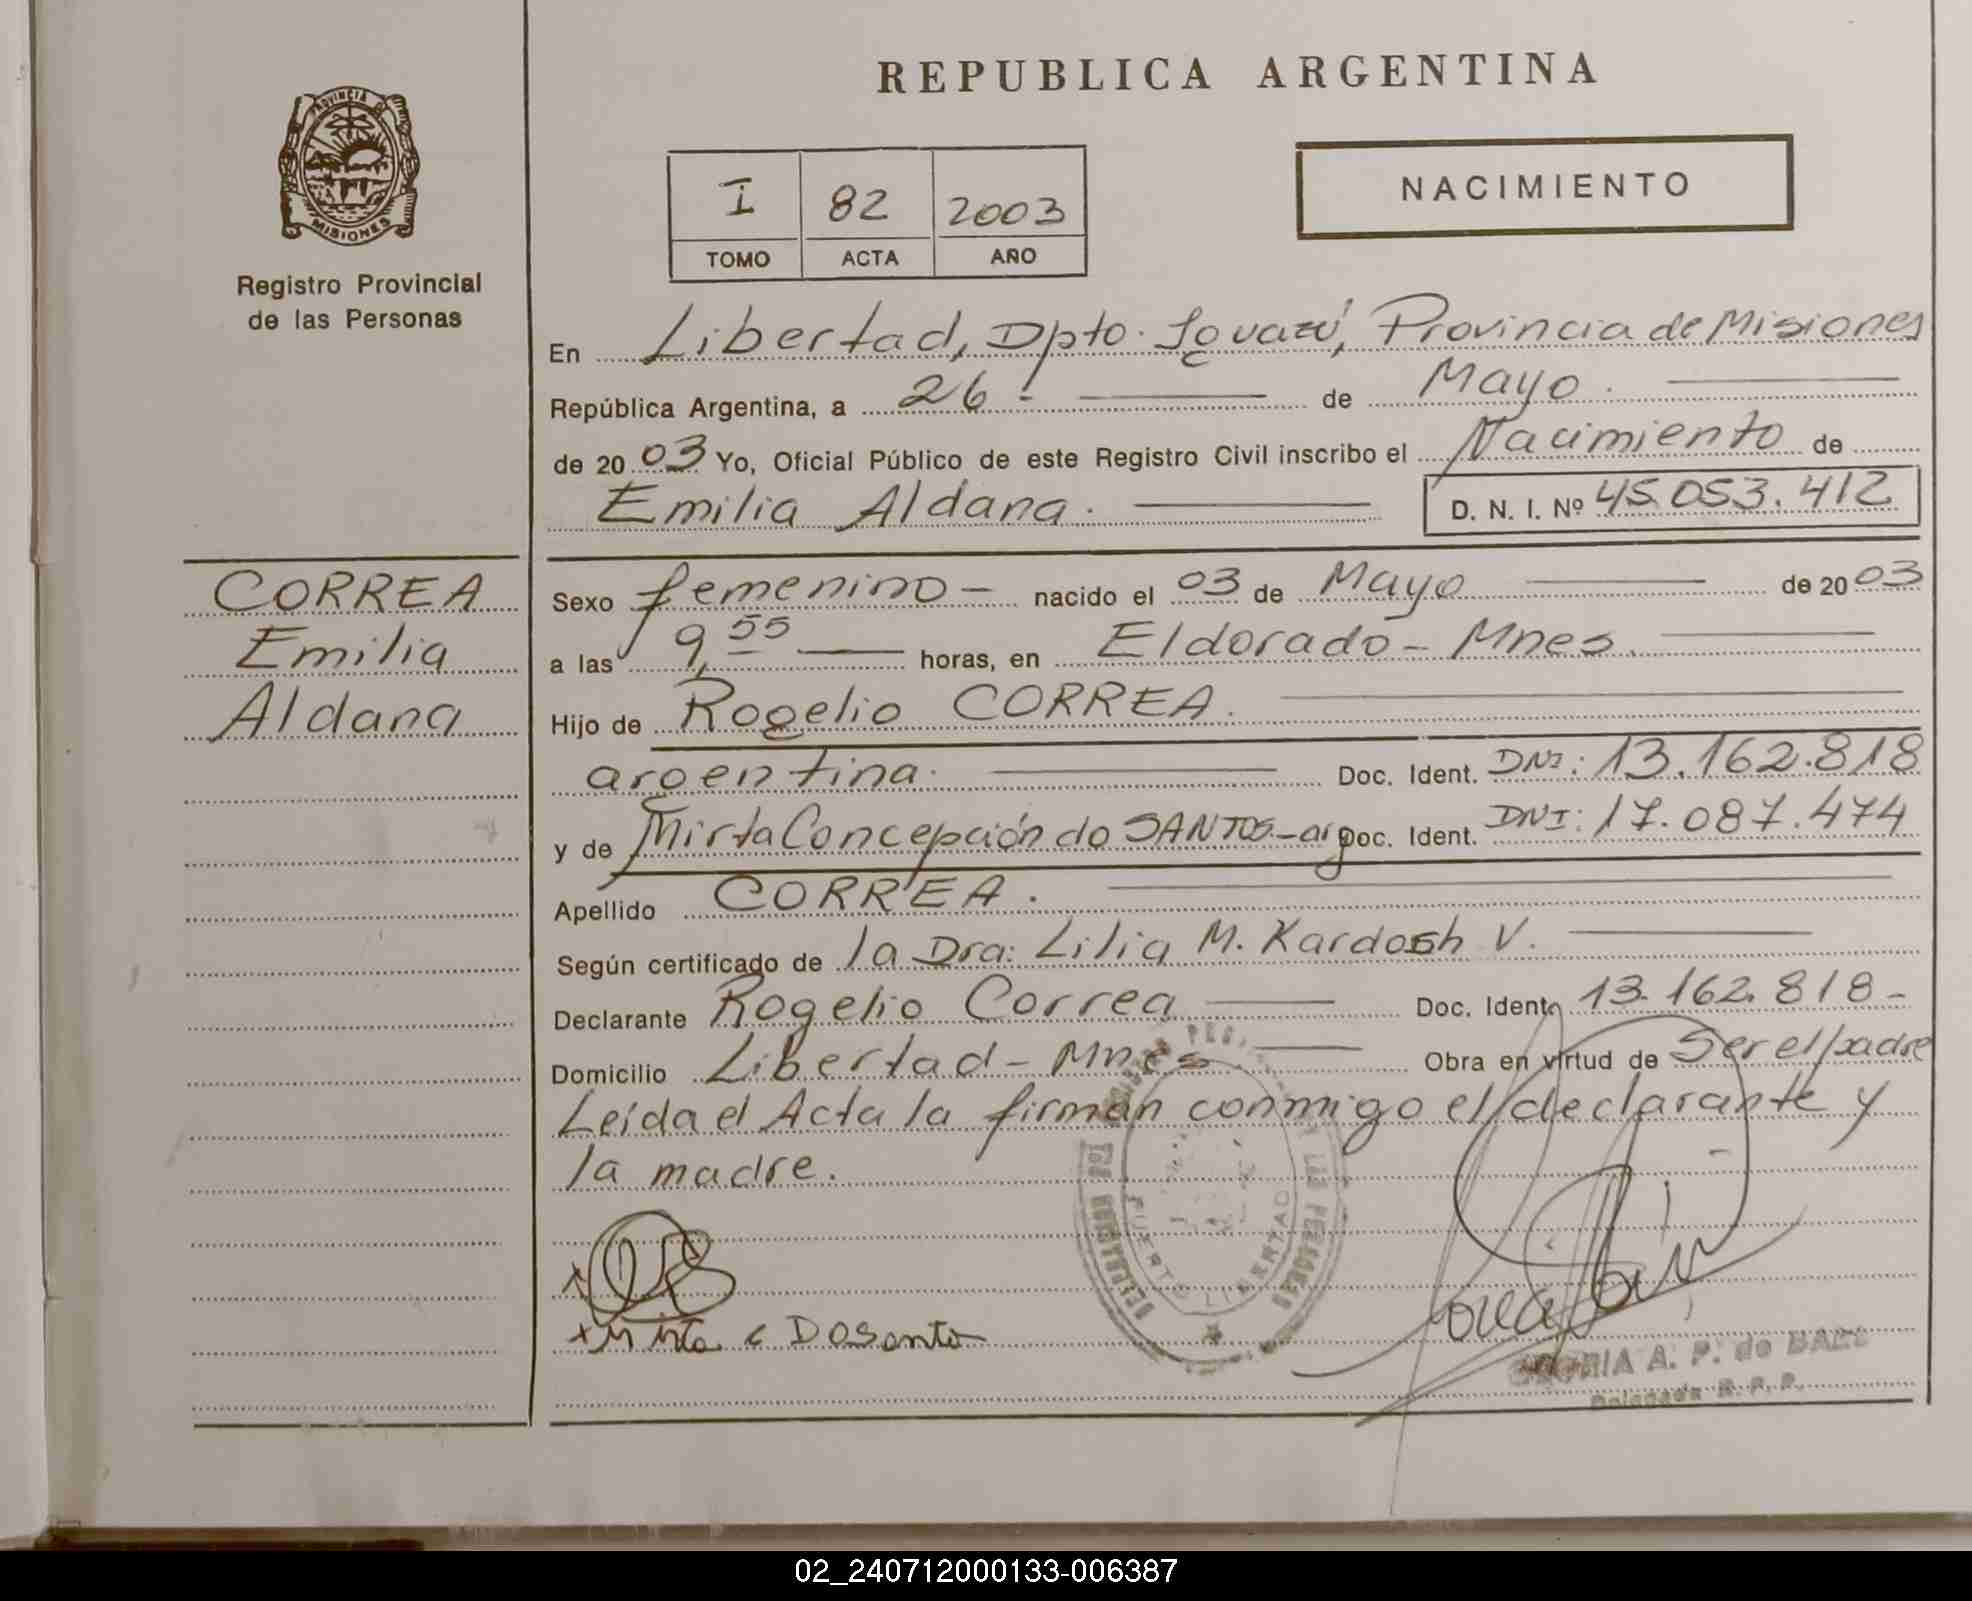 REPUBLICA ARGENTINA
PROVINCIA DE
MISIONES
Registro Provincial
de las Personas
NACIMIENTO
I 82 2003
TOMO ACTA AÑO
En Libertad, Dpto. Iguazú, Provincia de Misiones
República Argentina, a 26.- de Mayo.
de 2003 Yo, Oficial Público de este Registro Civil inscribo el Nacimiento de
Emilia Aldana. D. N. I. Nº 45.053.412
CORREA
Emilia
Aldana
Sexo femenino - nacido el 03 de Mayo de 2003
a las 9,55 horas, en Eldorado - Mnes.
Hijo de Rogelio CORREA.
argentina. Doc. Ident. DNI: 13.162.818
y de Mirta Concepción do SANTOS - arg Doc. Ident. DNI: 17.087.474
Apellido CORREA.
Según certificado de la Dra: Lilia M. Kardosh V.
Declarante Rogelio Correa Doc. Ident. 13.162.818 -
Domicilio Libertad - Mnes Obra en virtud de Ser el padre
Leída el Acta la firman conmigo el declarante y
la madre.
PUERTO LIBERTAD
LAS PERSONAS
Mirta C Dosanto
A. P. de
Delegada R. P. P.
02_240712000133-006387